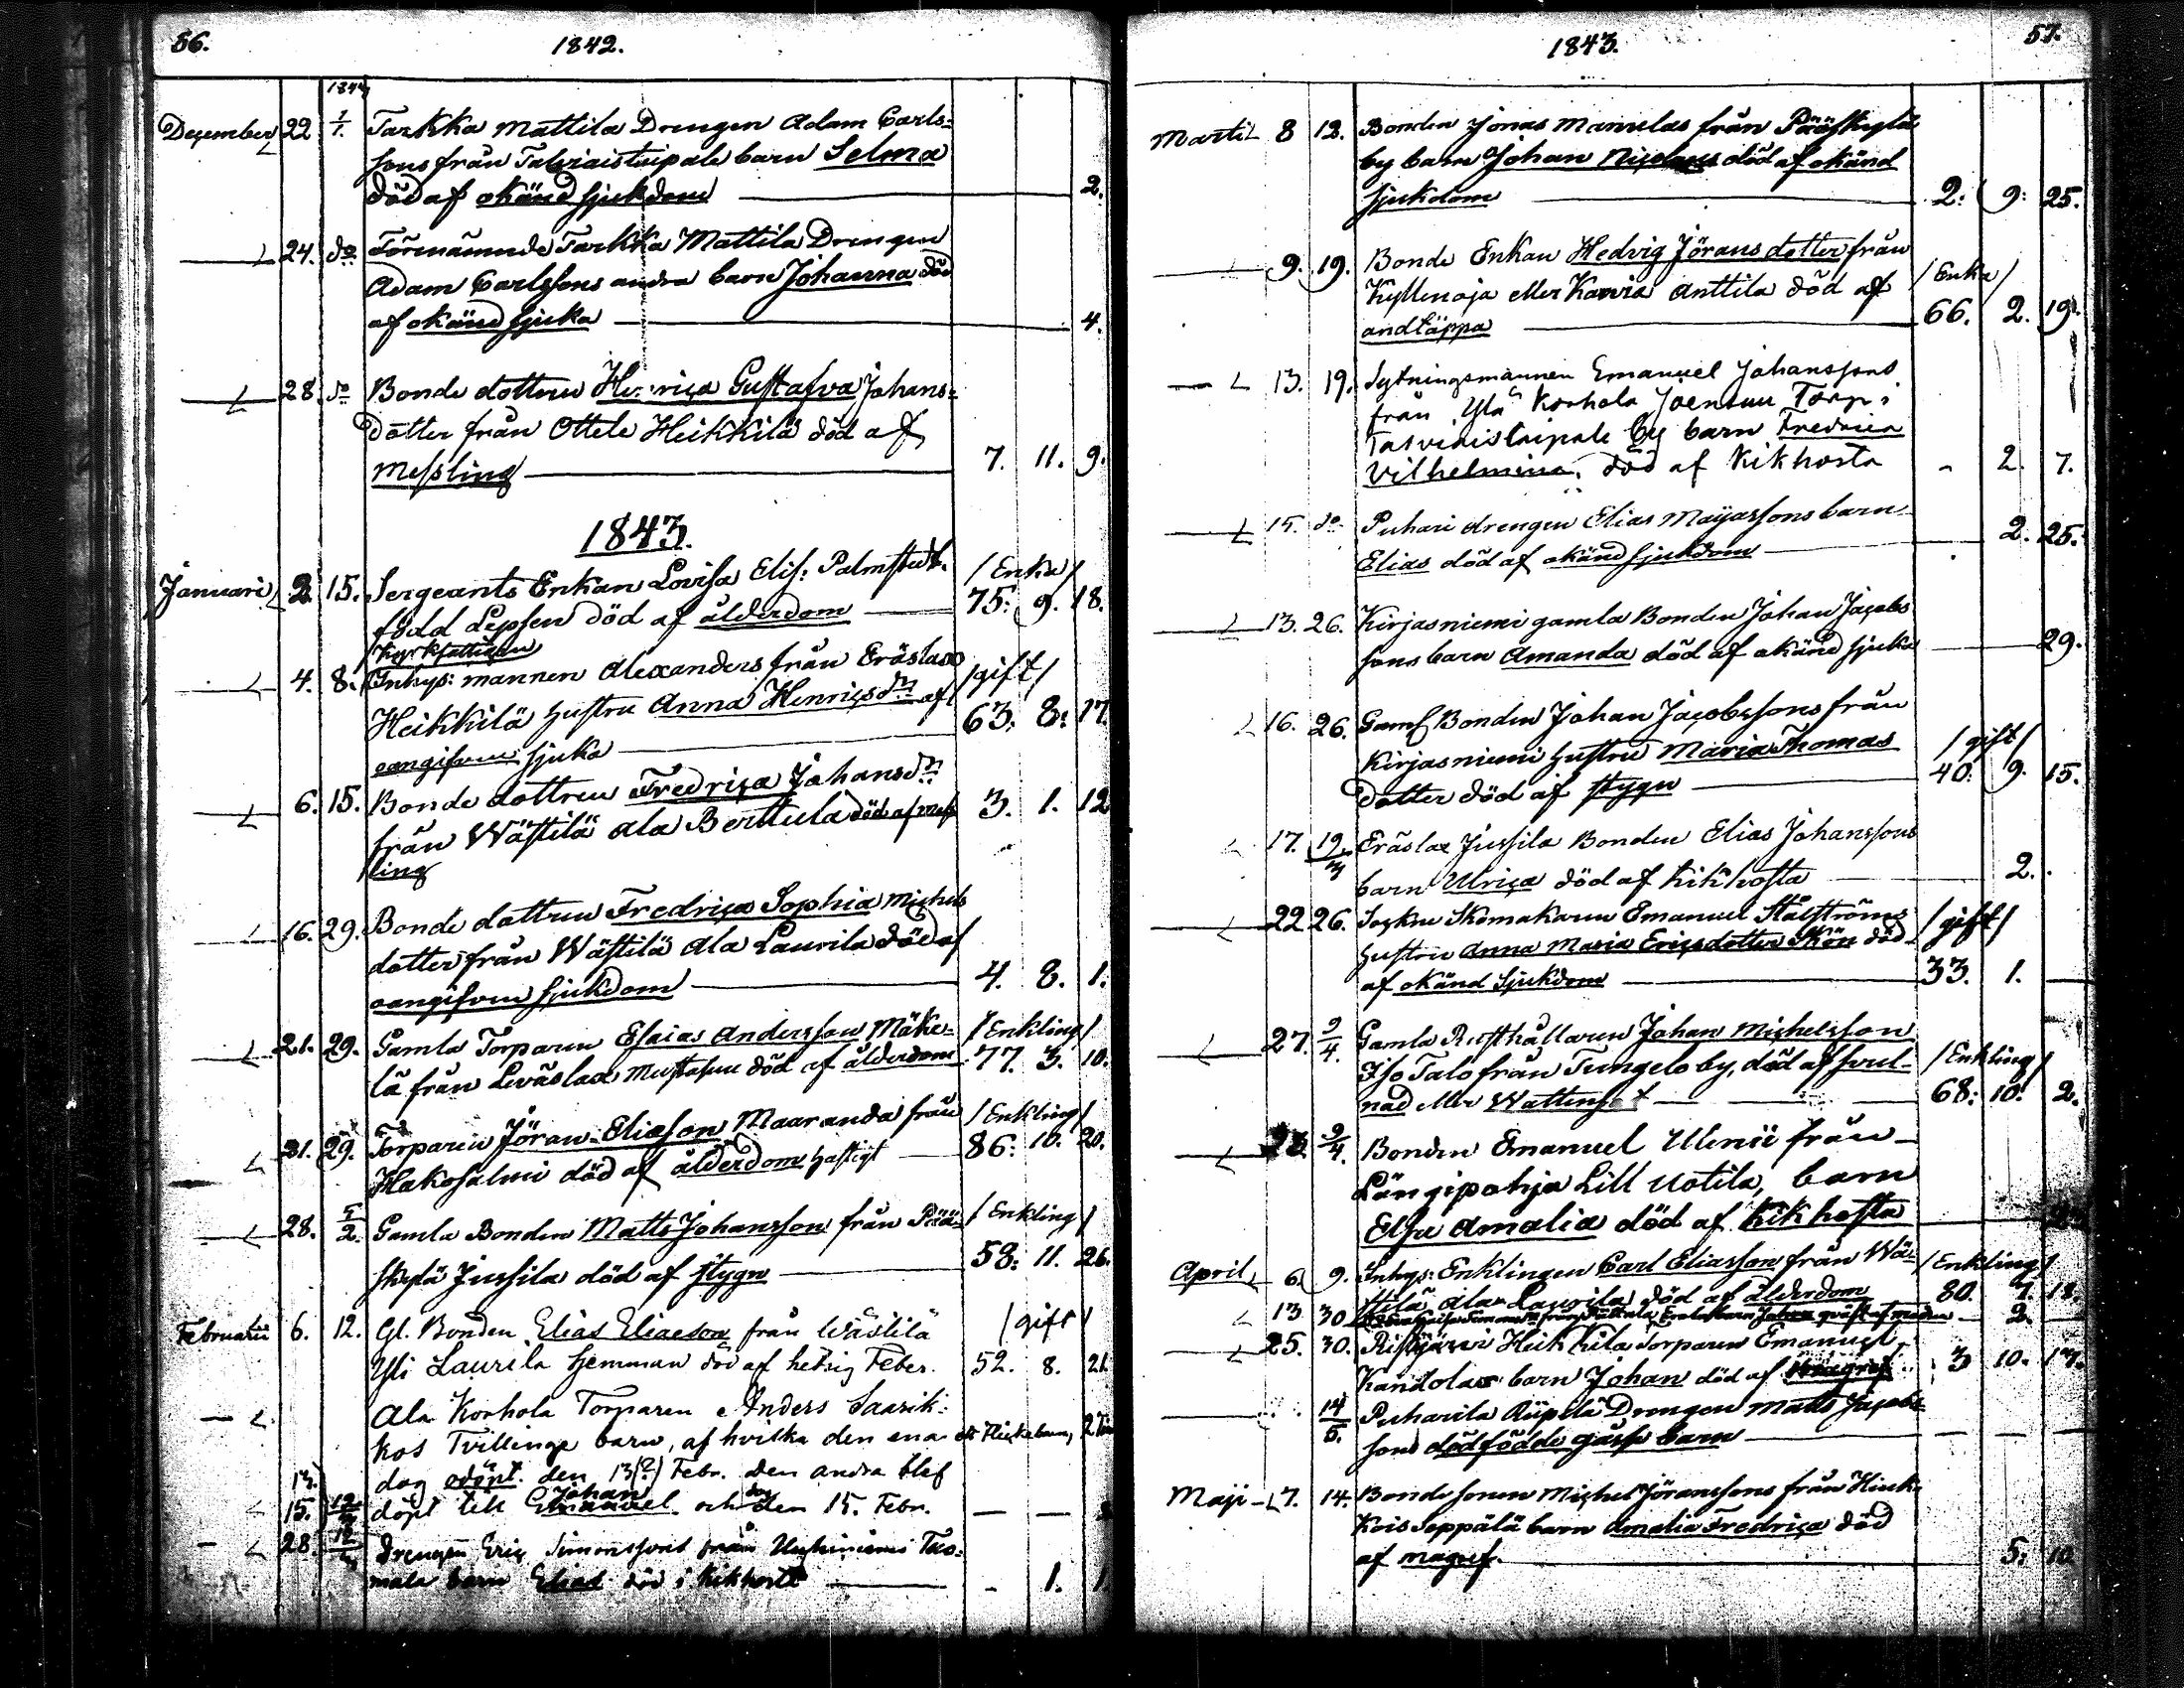 56.
1842.
1843
December 22 1/1. Tarkka Mattila Drengen Adam Carls-
sons från Talviaistaipale barn Selma
död af okänd sjukdom 2.
24. do Förenämnde Tarkka Mattila Drengen
Adam Carlssons andra barn Johanna död
af okänd sjuka 4.
28. do Bonde dottren Henrica Gustafva Johans-
dotter från Ottele Heikkilä död af
messling 7. 11. 9.
1843.
Januari 2. 15. Sergeants Enkan Lovisa Elis: /Enka/
född Lepsen död af ålderdom 75: 9. 18.
Kyrkfattigen
4. 8. Inhys: mannen Alexanders från Eräslax /gift/
Heikkilä hustru Anna Henricsdr af 63: 8: 17.
oangifven sjuka
6. 15. Bonde dottren Fredrica Johansdr
från Wästilä Ala Berttula död af mess 3. 1. 12
ling
16. 29. Bonde dottren Fredrica Sophia Michels
dotter från Wästilä Ala Laurila död af
oangifven sjukdom 4. 8. 1.
21. 29. Gamla Torparen Esaias Andersson Mäke- /Enkling/
lä från Leväslax död af ålderdom 77. 3. 10.
21. 29. Torparen Jöran Eliasson Maaranda från /Enkling/
Hakosalmi död af ålderdom hastigt 86: 10. 20.
28. 5/2. Gamla Bonden Matts Johansson från Pää- /Enkling/
skylä Jussila död af stygn 58: 11. 26.
Februarii 6. 12. Gl. Bonden Elias Eliaeson från Wästilä /gift/
Yli Laurila hemman död af hetsig Feber. 52. 8. 21.
Ala Korhola Torparen Anders Saarik-
kos Tvillinge barn, af hvilka den ena
13. dog odöpt den 13(?) Febr. den andra blef
Johan dog
15. 12/3 döpt till Emanuel och den 15. Febr.
28. 12/3 Drengen Eric Simonssons från
barn Elias död i kikhosta 1. 1
57.
1843.
Martii 8 12. Bonden Jonas Manuelas från Pääskylä
by barn Johan Nicolaus död af okänd
sjukdom 2: 9: 25.
9. 19. Bonde Enkan Hedvig Jörans dotter från /Enka/
Kyllenoja eller Karvia Anttila död af
andtäppa 66. 2. 19.
13. 19. Sytningsmannen Emanuel Johanssons
från Ylä Korhola Joensuu Torp i
Tarviaistaipale by barn Fredrica
Vilhelmina, död af Kikhosta 2. 7.
15. do Puhari drengen Elias Mayassons barn
Elias död af okänd sjukdom 2. 25.
13. 26. Kirjasniemi gamla Bonden Johan Jacobs
sons barn Amanda död af okänd sjuka 29.
16. 26. Gaml Bonden Johan Jacobssons från
Kirjasniemi hustru Maria Thomas /gift/
dotter död af stygn 40. 9. 15.
17. 19/3 Eräslax Jussila Bonden Elias Johanssons
barn Ulrica död af kikhosta 2.
22 26. Sockne Skomakaren Emanuel Stålströms /gift/
hustru Anna Maria Ericsdotter Skön död
af okänd sjukdom 33. 1.
27. 9/4. Gamla Rusthållaren Johan Michelsson
Iso Talo från Tungelo by, död af svul- /Enkling/
nad eller Wattensot 68: 10. 2.
28. 9/4. Bonden Emanuel från
Längipohja Lill Uotila, barn
Elsa Amalia död af kikhosta
April 6. 9. Inhys: Enklingen Carl Eliasson från Wä- /Enkling/
stilä Ala Laurila död af ålderdom 80. 7. 18.
13 30 2.
25. 30. Ristijärvi Heikkilä torparen Emanuel
Kandolas barn Johan död af 3 10. 17.
14/5. Puharila Äijälä Drengen Matts Jacobs-
sons dödfödde gosse barn
Maji 7. 14. Bonde sonen Michel Jöranssons från
Seppälä barn Amalia Fredrica död
af magref. 5: 10